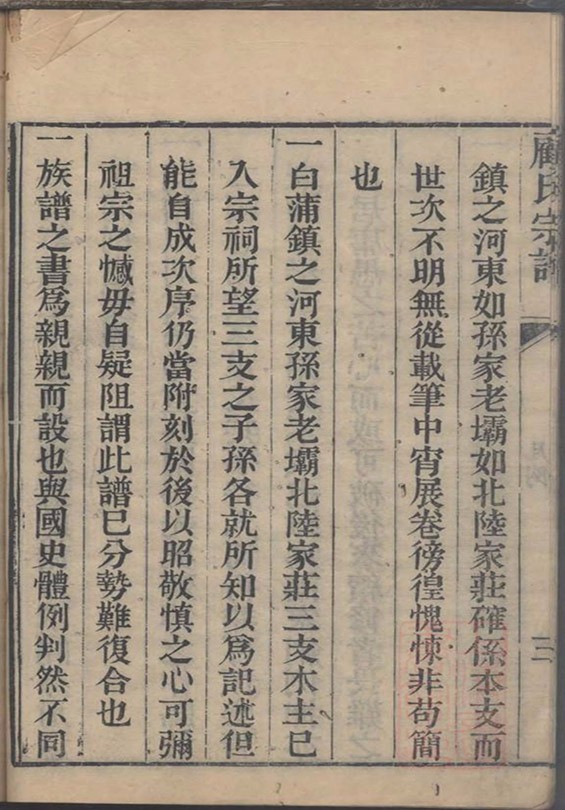 顧氏宗譜
三
鎮之河東如孫家老壩如北陸家莊確係本支而
世次不明無從載筆中宵展卷徬徨愧悚非苟簡
也
一白蒲鎮之河東孫家老壩北陸家莊三支木主已
入宗祠所望三支之子孫各就所知以為記述但
能自成次序仍當附刻於後以昭敬慎之心可彌
祖宗之憾毋自疑阻謂此譜已分勢難復合也
一族譜之書為親親而設也與國史體例判然不同